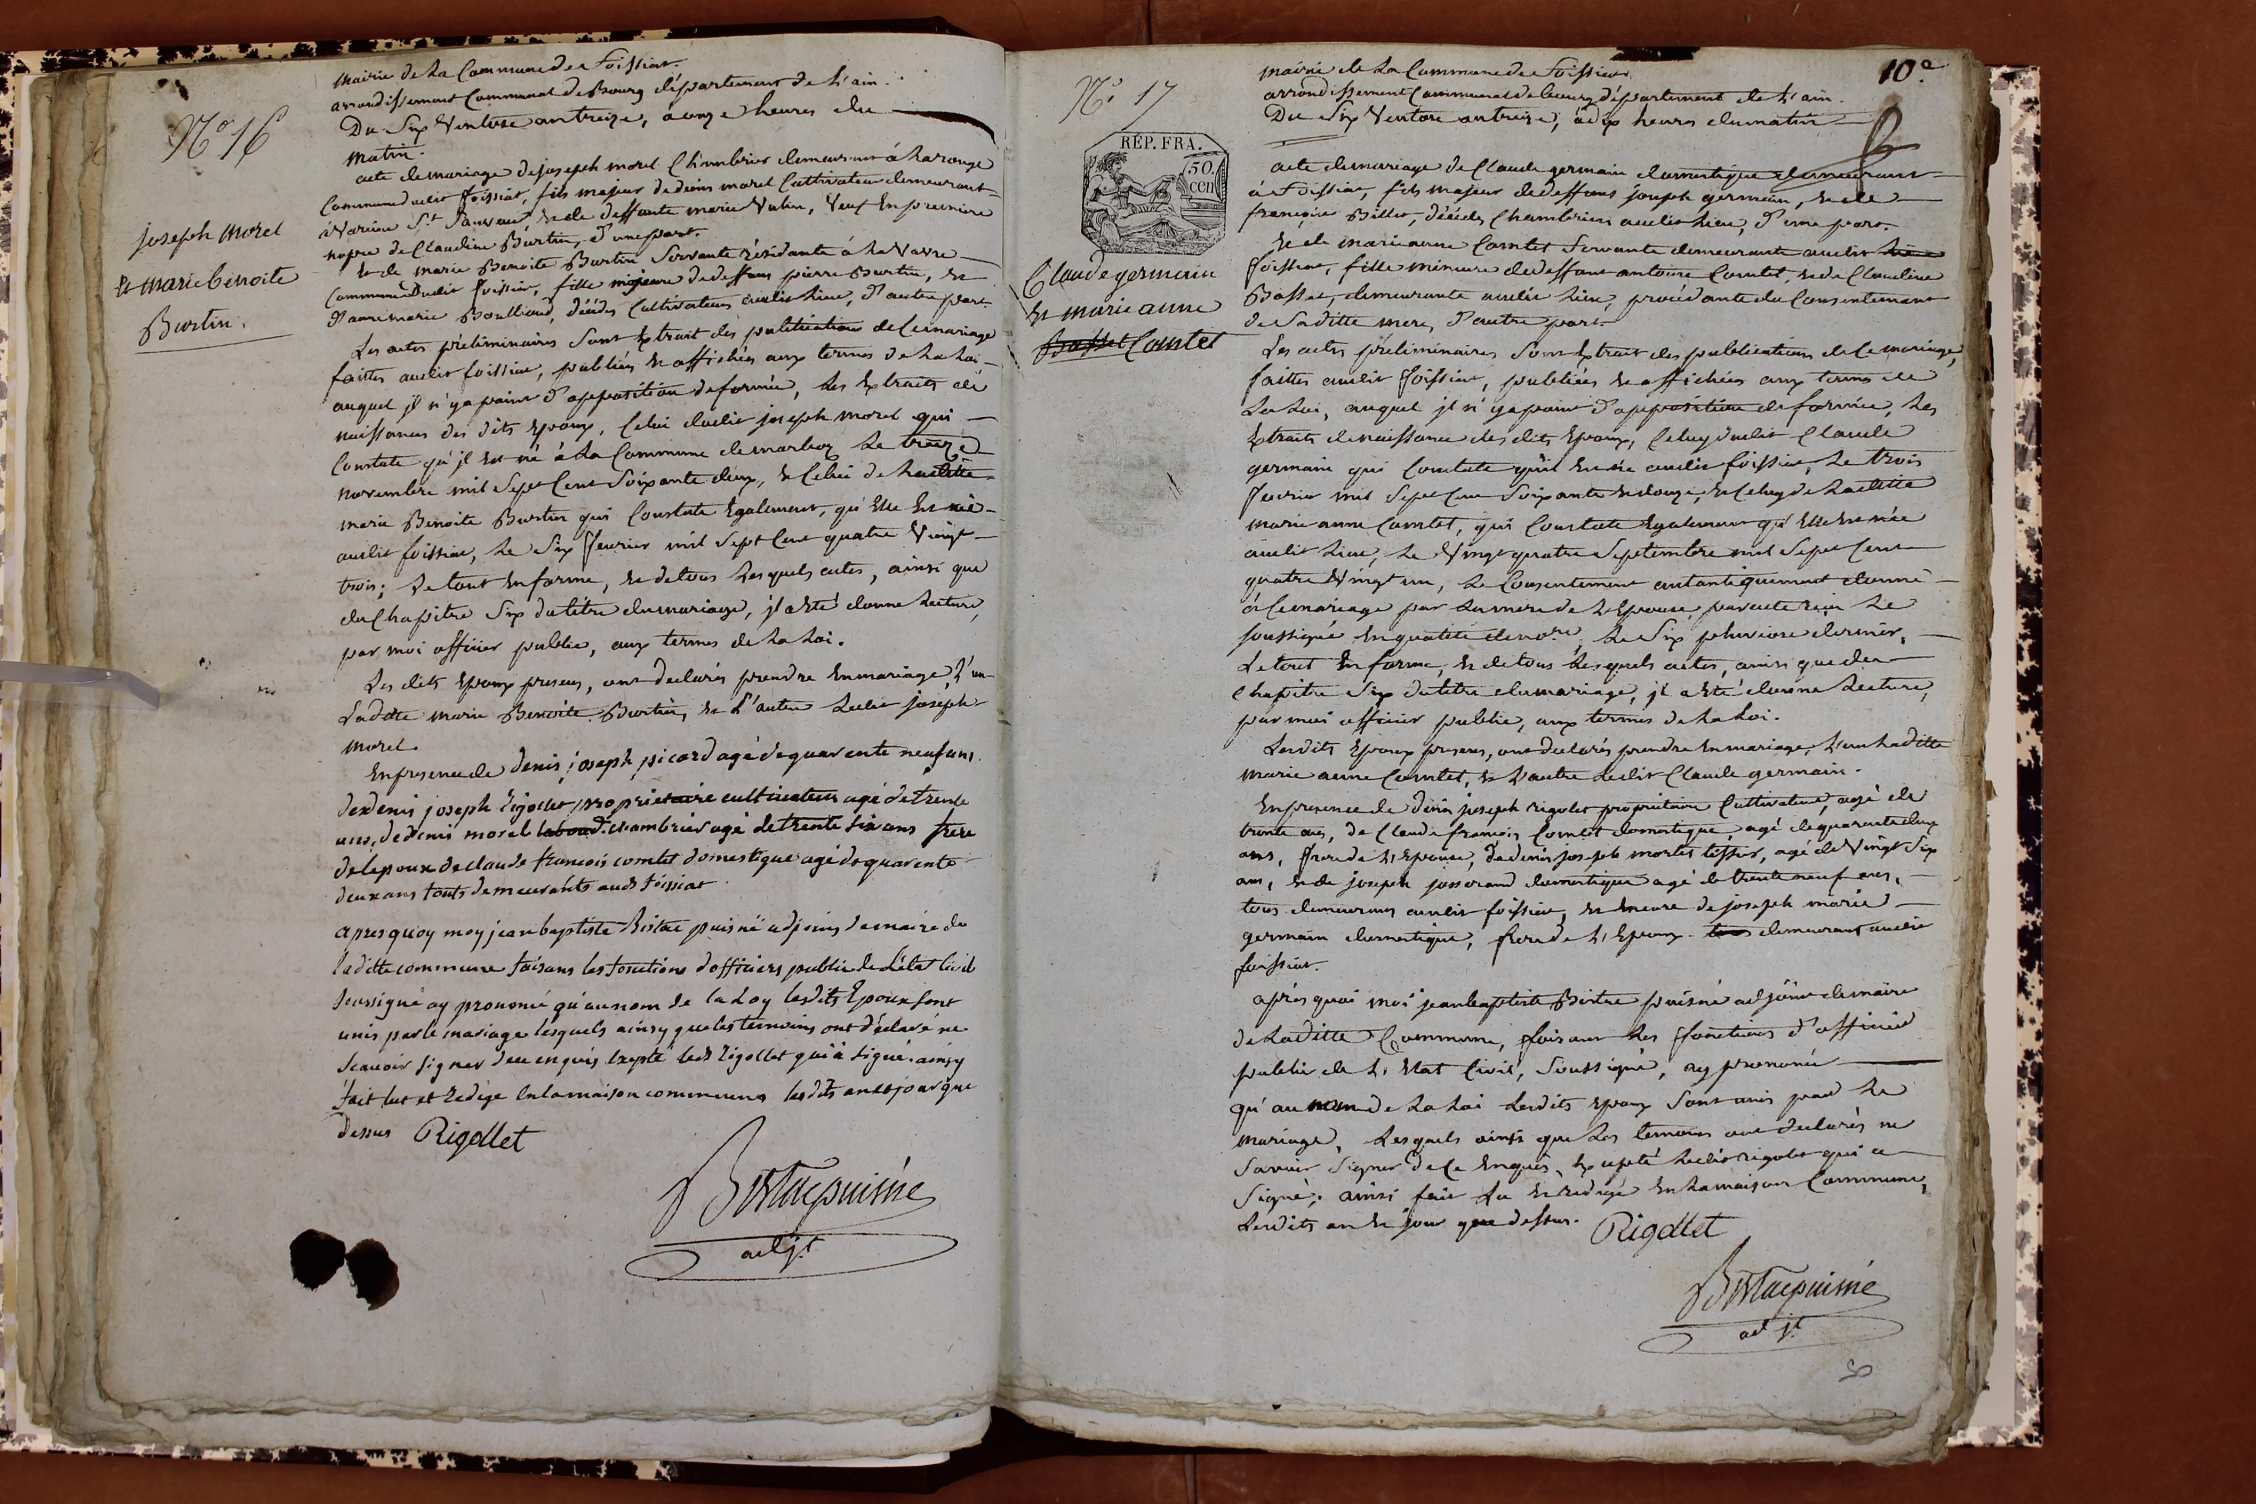 mairie de La Commune de foissiat.
arrondissement Communal de Bourg département de L'ain.
Du Six Ventose an treize, a onze heures du
matin.
N° 16
joseph morel
et marie benoite
Burtin.
acte de mariage de joseph morel Chambrier demeurant à
Commune dudit foissiat, fils majeur de denis morel Cultivateur demeurant
à St. et de deffunte marie Veuf En premiere
nopce de Claudine Burtin, d'une part.
Et de marie Benoite Burtin Servante résidante à
Commune dudit foissiat, fille majeure de deffunt pierre Burtin, et
d'anne marie décédés Cultivateurs audit Lieu, d'autre part.
Les actes préliminaires Sont Extrait des publications de Ce mariage
faittes audit foissiat, publiées et affichées aux termes de La Loi
auquel jl n'y a point d'opposition de formée, Les Extraits de
naissances des dits Epoux, Celui dudit joseph morel qui
Constate qu'jl Est né à La Commune de marboz Le treize
novembre mil Sept Cent Soixante deux, et Celui de Laditte
marie Benoite Burtin qui Constate Egalement, qu'Elle Est née
audit foissiat, Le Six fevrier mil Sept Cent quatre Vingt
trois; Le tout En forme, et de tous Lesquels actes, ainsi que
du Chapitre Six du titre du mariage, jl a Eté donné Lecture,
par moi officier public, aux termes de La Loi.
Les dits Epoux presens, ont declarés prendre En mariage, L'un
Laditte marie Benoite Burtin, et L'autre Ledit joseph
morel.
En presence de denis joseph picard agé de quarente neuf ans.
de denis joseph rigollet proprietaire cultivateur agé de trente
ans, de denis morel chambrier agé de trente six ans frere
de lepoux de claude francois comtet domestique agé de quarente
deux ans touts demeurants audt foissiat.
apres quoy moy jean baptiste Bistac puisné adjoint de maire de
ladittecommune faisans les fonctions d'officiers public de L'état Civil
soussigné ay prononcé qu'au nom de la Loy lesdits Epoux sont
unis par le mariage lesquels ainsy que les temoins ont déclaré ne
scavoir signer de ce enquis Excepté ledt rigollet qui a signé. ainsy
fait lut et redigé en la maison commune lesdits an et jour que
dessus Rigollet
Bistac puisné
adjt.
10e.
N° 17
RÉP. FRA.
50.
CEN
Claude germain
et marie anne
Basset Comtet
mairie de La Commune de foissiat.
arrondissement Communal de bourg département de L'ain.
Du Six Ventose an treize, à dix heures du matin
acte de mariage de Claude germain domestique demeurant
à foissiat, fils majeur de deffunt joseph germain, et de
françoise Billet, décédés Chambriers audit Lieu, d'une part.
Et de marie anne Comtet Servante demeurante audit Lieu
foissiat, fille mineure de deffunt antoine Comtet, et de Claudine
Basset, demeurante audit Lieu, procédante du Consentement
de Saditte mere, d'autre part.
Les actes préliminaires Sont Extrait des publications de Ce mariage,
faittes audit foissiat, publiées et affichées aux termes de
La Loi, auquel jl n'y a point d'opposition de formée, Les
Extraits de naissance des dits Epoux, Celuy dudit Claude
germain qui Constate qu'il Est né audit foissiat, Le trois
fevrier mil Sept Cent Soixante et douze, et Celuy de Laditte
marie anne Comtet, qui Constate Egalement qu'Elle Est née
audit Lieu, Le Vingt quatre Septembre mil Sept Cent
quatre Vingt un, Le Consentement autantiquement donné
à Ce mariage par La mere de L'Epouse, par acte reçu Le
soussigné En qualité de nore. Le Six pluviose dernier.
Le tout En forme, et de tous Lesquels actes, ainsi que du
Chapitre Six du titre du mariage, jl a Eté donné Lecture,
par moi officier public, aux termes de La Loi.
Lesdits Epoux presens, ont declarés prendre En mariage, L'un Laditte
marie anne Comtet, et L'autre Ledit Claude germain.
En presence de denis joseph rigolet proprietaire Cultivateur, agé de
trente ans, de Claude françois Comtet domestique agé de quarante deux
ans, frere de L'Epouse, de denis joseph tissier, agé de Vingt Six
ans, et de joseph josserand domestique agé de trente neuf ans,
tous demeurans audit foissiat, et Encore de joseph marie
germain domestique, frere de L'Epoux. tous demeurant audit
foissiat.
après quoi moi jean baptiste Bistac puisné adjoint de maire
de Laditte Commune, faisant Les fonctions d'officier
public de L'Etat Civil, Soussigné, ay prononcé
qu'au nom de La Loi Lesdits Epoux Sont unis par Le
mariage, Lesquels ainsi que Les temoins ont declarés ne
Savoir Signer de Ce Enquis, Excepté Ledit rigolet qui a
Signé; ainsi fait Lu et redigé En La maison Commune,
Lesdits an et jour que dessus. Rigollet
Bistac puisné
adjt.